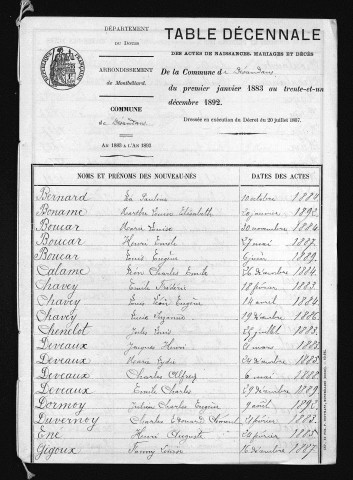 DÉPARTEMENT
DU DOUBS
ARRONDISSEMENT
de Montbéliard.
COMMUNE
de Désandans
AN 1883 A L'AN 1893
TABLE DÉCENNALE
DES ACTES DE NAISSANCES, MARIAGES ET DÉCÈS
De la Commune de Désandans
du premier janvier 1883 au trente-et-un
décembre 1892.
Dressée en exécution du Décret du 20 juillet 1807.
NOMS ET PRÉNOMS DES NOUVEAU-NÉS DATES DES ACTES
Bernard Pauline 10 octobre 1884
Boname Marthe Louise Elisabeth janvier 1892.
Boucar Louise 20 novembre 1884.
Boucar Henri Emile 27 mai 1887.
Boucar Louis Eugène 6 juin 1889.
Calame Léon Charles Emile 26 décembre 1884.
Chavey Emile Frédéric 18 février 1883.
Chavey Louis Eugène 14 avril 1884.
Chavey Suzanne 19 décembre 1886.
Chenelot Jules Louis juillet 1883.
Deveaux Jacques Henri mars 1883.
Deveaux Marie décembre 1885.
Deveaux Charles Alfred 6 mai 1888.
Deveaux Emile Charles 29 décembre 1889.
Dormoy Julien Charles Eugène 9 août 1892.
Duvernoy Charles Edouard février 1883.
Ene Henri Auguste février 1885.
Gigoux Fanny Louise 16 décembre 1887.